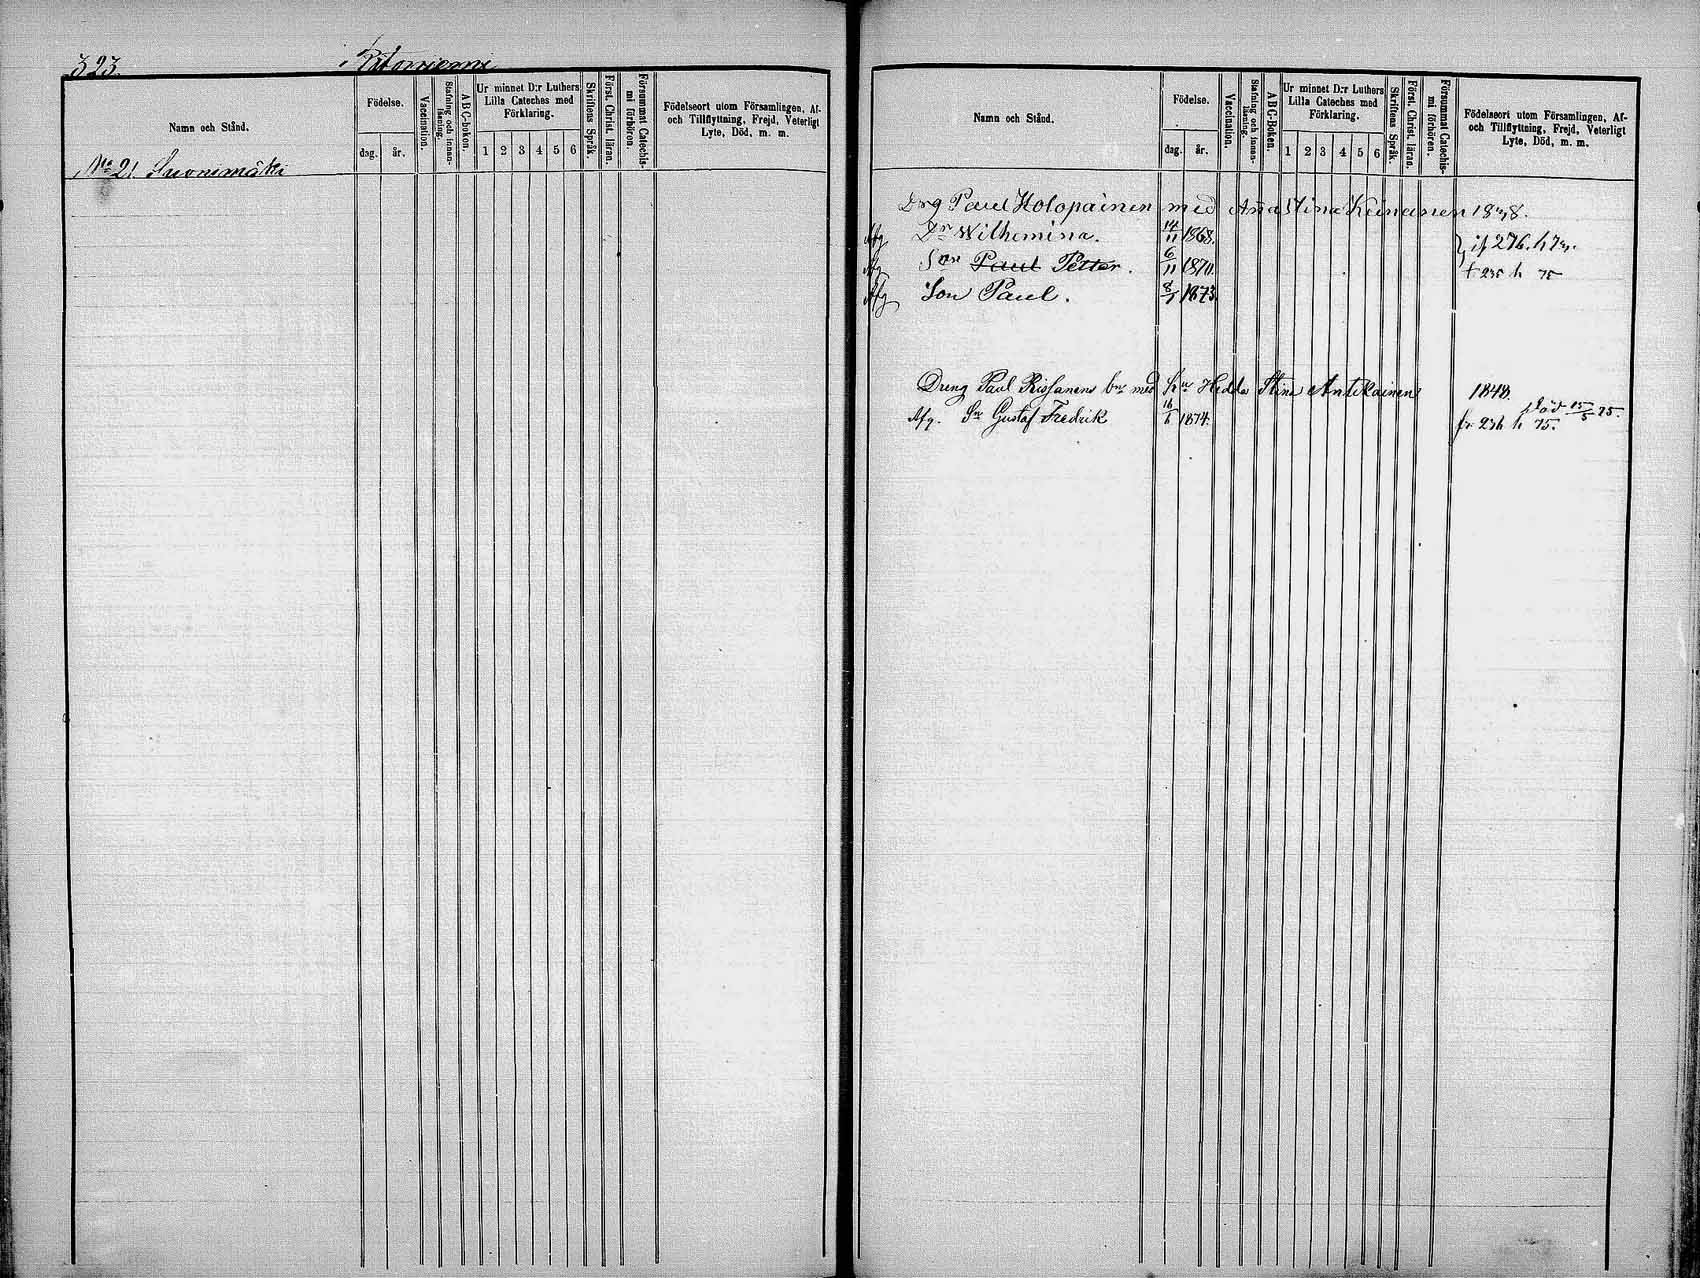 323.
Namn och Stånd.
Födelse.
dag.
år.
Vaccination.
Stafning och innan-
läsning.
A B C-boken.
Ur minnet D:r Luthers
Lilla Cateches med
Förklaring.
1 2 3 4 5 6
Skriftens Språk.
Först. Christ. läran.
Försummat Catechis-
mi förhören.
Födelseort utom Församlingen, Af-
och Tillflyttning, Frejd, Veterligt
Lyte, Död, m. m.
No 21 Suonimäki
Namn och Stånd.
Födelse.
dag.
år.
Vaccination.
Stafning och innan-
läsning.
A B C-Boken.
Ur minnet D:r Luthers
Lilla Cateches med
Förklaring.
1 2 3 4 5 6
Skriftens Språk.
Först. Christ. läran.
Försummat Catechis-
mi förhören.
Födelseort utom Församlingen, Af-
och Tillflyttning, Frejd, Veterligt
Lyte, Död, m. m.
Drg Paul Holopainen med Anna Stina Keinänen
Afg Dr Wilhemina. 14/11 1868.
Afg Son Paul Petter. 6/11 1870.
Afg Son Paul. 8/1 1873.
Dreng Paul Rissanens med Hedda Stina Antikainen 1848.
Afg. Sn Gustaf Fredrik 16/6 1874. död 15/5 75.